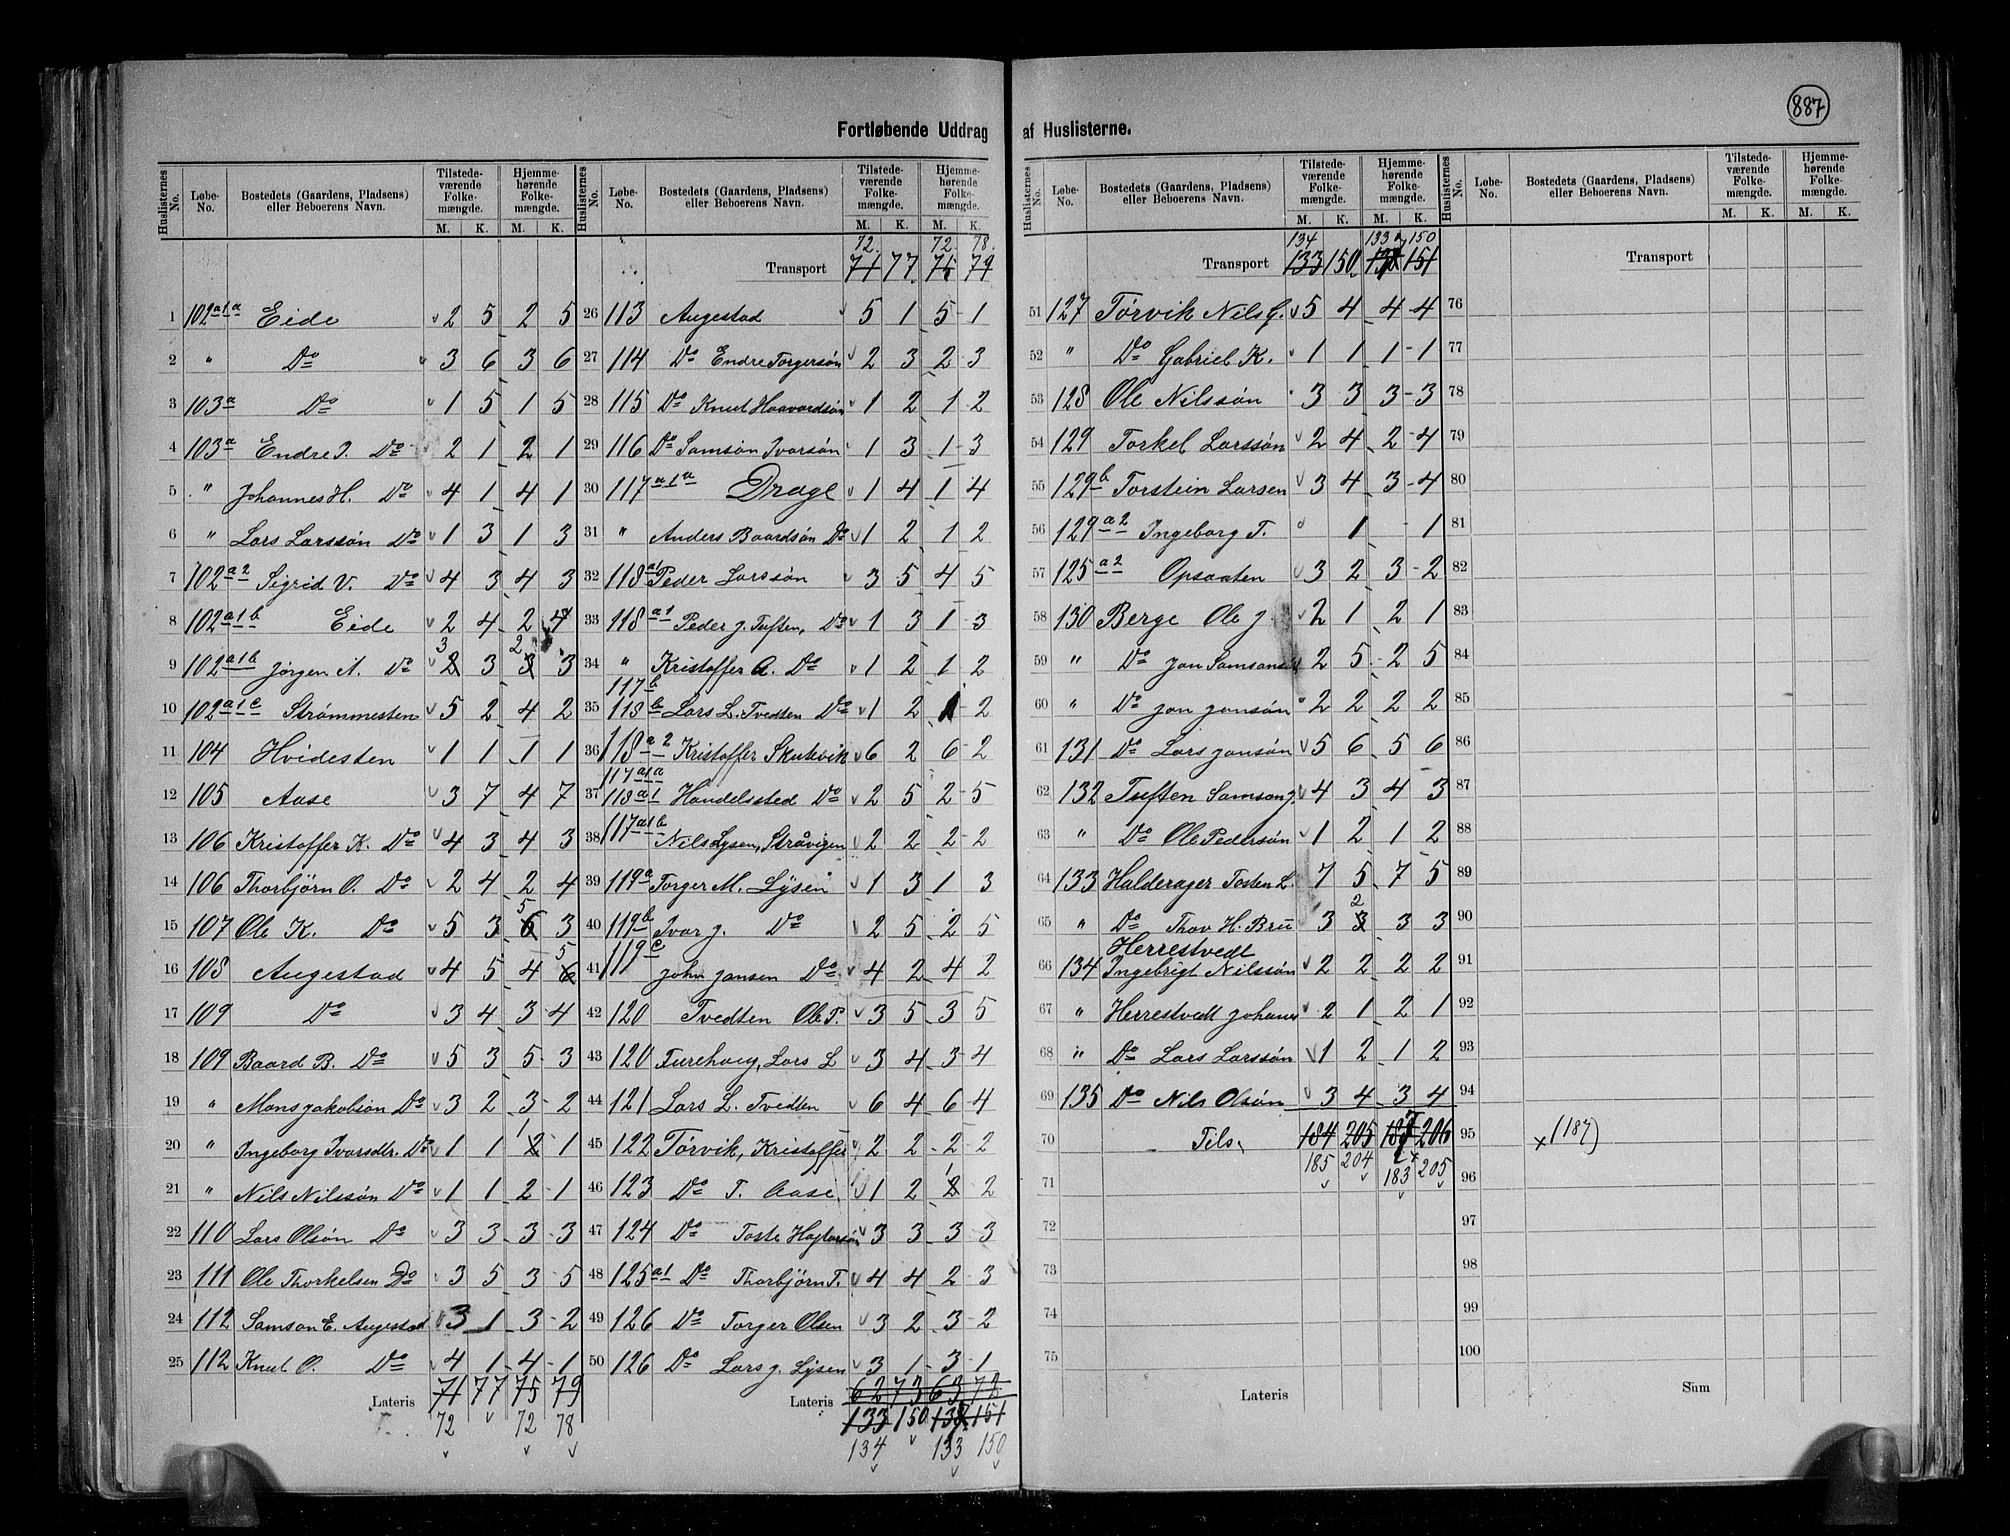 887
Fortløbende Uddrag af Huslisterne.
Huslisternes No. Løbe-No. Bostedets (Gaardens, Pladsens) eller Beboerens Navn. Tilstedeværende Folkemængde. Hjemmehørende Folkemængde.
M. K. M. K.
1 102a1a Eide 2 5 2 5
2 " Do 3 6 3 6
3 103a Do 1 5 1 5
4 103a Endre J. Do 2 1 2 1
5 " Johannes H. Do 4 1 4 1
6 " Lars Larssön Do 1 3 1 3
7 102a2 Sigrid V. Do 4 3 4 3
8 102a1b Eide 2 4 2 4
9 102a1b Jørgen A. Do 3 3 2 3
10 102a1c Strømmesten 5 2 4 2
11 104 Hvidesten 1 1 1 1
12 105 Aase 3 7 4 7
13 106 Kristoffer K. Do 4 3 4 3
14 106 Thorbjörn O. Do 2 4 2 4
15 107 Ole K. Do 5 3 5 3
16 108 Augestad 4 5 4 5
17 109 Do 3 4 3 4
18 109 Baard B. Do 5 3 5 3
19 " Mons Jakobsön Do 3 2 3 2
20 " Ingeborg Ivarsdtr. Do 1 1 1 1
21 " Nils Nilssön Do 1 1 2 1
22 110 Lars Olsön Do 3 3 3 3
23 111 Ole Thorkelsen Do 3 5 3 5
24 112 Samson E. Augestad 3 1 3 2
25 112 Knut O. Do 4 1 4 1
Lateris 71 77 75 79
72 72 78
Huslisternes No. Løbe-No. Bostedets (Gaardens, Pladsens) eller Beboerens Navn. Tilstedeværende Folkemængde. Hjemmehørende Folkemængde.
M. K. M. K.
72 72 78
Transport 71 77 75 79
26 113 Augestad 5 1 5 1
27 114 Do Endre Torgersön 2 3 2 3
28 115 Do Knut Haavardsön 1 2 1 2
29 116 Do Samson Ivarsön 1 3 1 3
30 117a1a Drage 1 4 1 4
31 " Anders Baardsön Do 1 2 1 2
32 118a1 Peder Larssön 3 5 4 5
33 118a1 Peder J. Tuften, Do 1 3 1 3
34 " Kristoffer A. Do 1 2 1 2
117b
35 118b Lars L. Tvedten Do 1 2 1 2
36 118a2 Kristoffer Skutevik 6 2 6 2
117a1a
37 118a1 Handelssted Do 2 5 2 5
38 117a1b Nils Lysen, Stråvigen 2 2 2 2
39 119a Torger M. Lysen 1 3 1 3
40 119b Ivar J. Do 2 5 2 5
41 119c John Jansen Do 4 2 4 2
42 120 Tvedten Ole P. 3 5 3 5
43 120 Furehaug, Lars L 3 4 3 4
44 121 Lars L. Tvedten 6 4 6 4
45 122 Törvik, Kristoffer 2 2 2 2
46 123 Do T. Aase 1 2 1 2
47 124 Do Toste 3 3 3 3
48 125a1 Do Thorbjörn T. 4 4 2 3
49 126 Do Torger Olsen 3 2 3 2
50 126 Do Lars J. Lysen 3 1 3 1
Lateris 62 73 63 72
133 150 138 151
134 133 150
Huslisternes No. Løbe-No. Bostedets (Gaardens, Pladsens) eller Beboerens Navn. Tilstedeværende Folkemængde. Hjemmehørende Folkemængde.
M. K. M. K.
134 133 150
Transport 133 150 138 151
51 127 Törvik Nils G. 5 4 4 4
52 " Do Gabriel K. 1 1 1 1
53 128 Ole Nilssön 3 3 3 3
54 129 Torkel Larssön 2 4 2 4
55 129b Torstein Larsen 3 4 3 4
56 129a2 Ingeborg T. 1 1
57 125a2 Opsaaten 3 2 3 2
58 130 Berge Ole J 2 1 2 1
59 " Do Jon Samsons 2 5 2 5
60 " Do Jon Jonsön 2 2 2 2
61 131 Do Lars Jonsön 5 6 5 6
62 132 Tuften Samson J. 4 3 4 3
63 " Do Ole Pedersön 1 2 1 2
64 133 Halderager Tosten L. 7 5 7 5
65 " Do Thov H. Bru 3 2 3 3
Herrestvedt
66 134 Ingebrigt Nilssön 2 2 2 2
67 " Herrestvedt Johanes 2 1 2 1
68 " Do Lars Larssön 1 2 1 2
69 135 Do Nils Olsön 3 4 3 4
70 Tils. 184 205 187 206
71 185 204 183 205
72
73
74
75
Lateris
Huslisternes No. Løbe-No. Bostedets (Gaardens, Pladsens) eller Beboerens Navn. Tilstedeværende Folkemængde. Hjemmehørende Folkemængde.
M. K. M. K.
Transport
76
77
78
79
80
81
82
83
84
85
86
87
88
89
90
91
92
93
94
95 x (187)
96
97
98
99
100
Sum